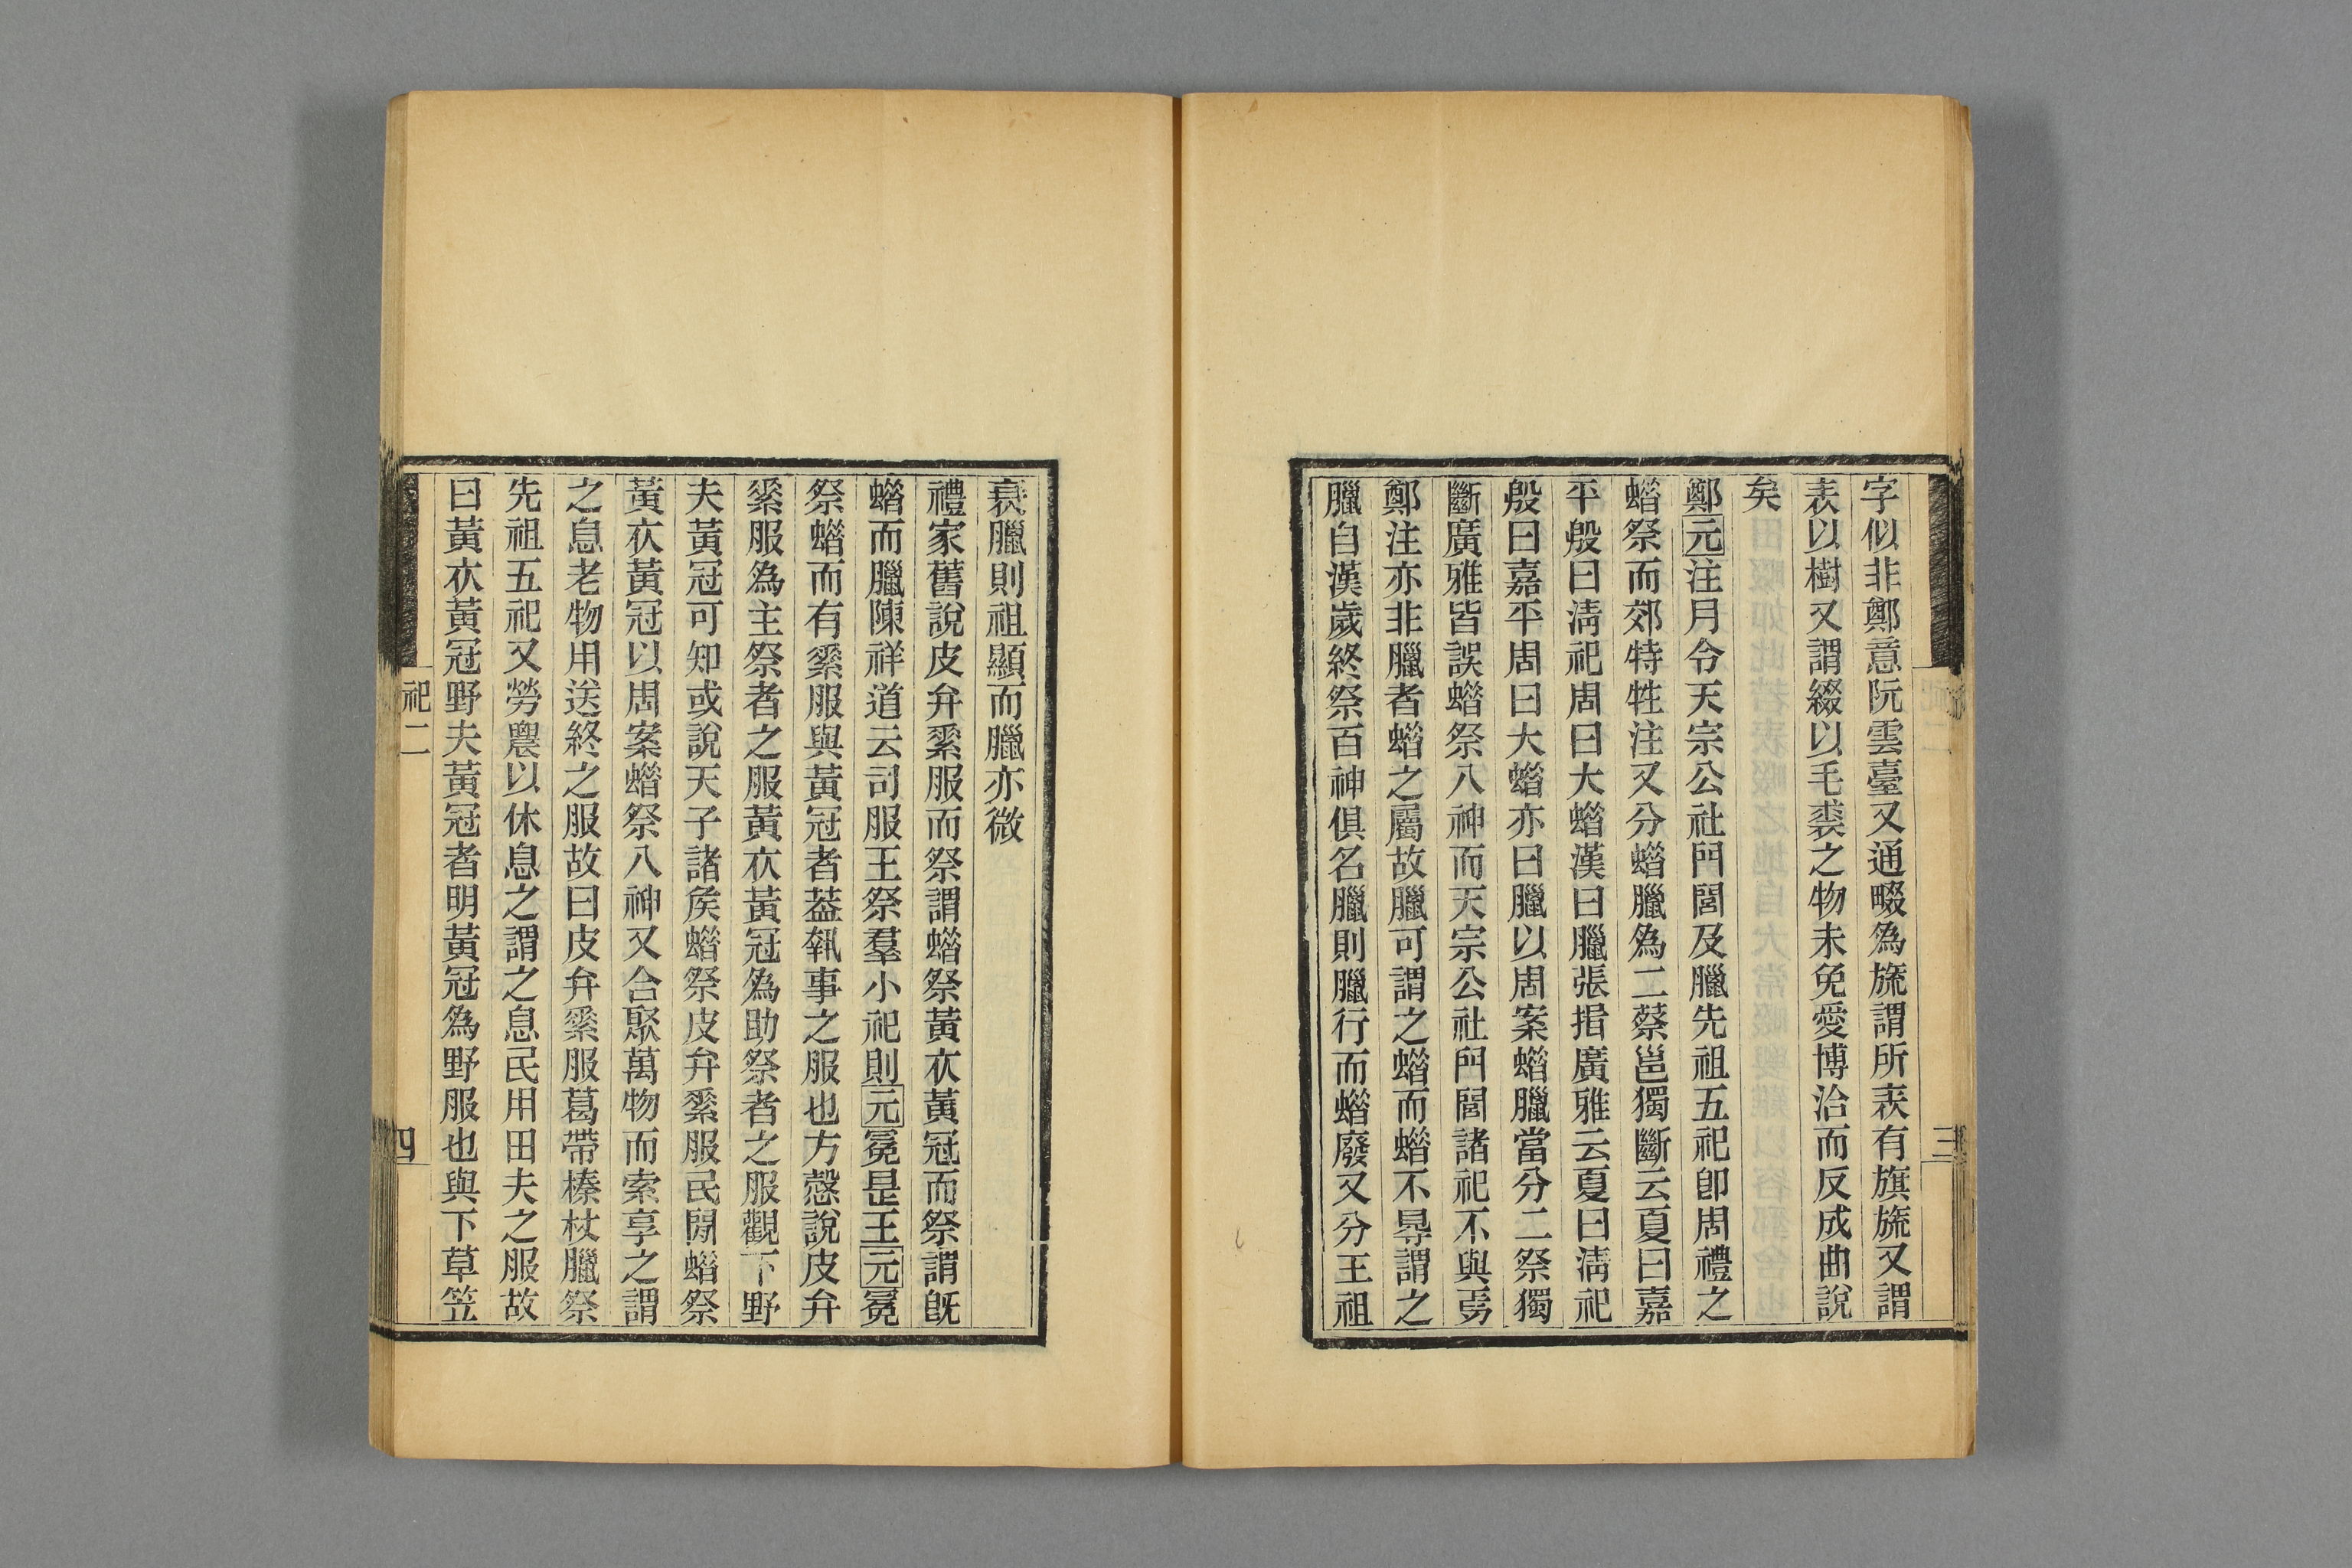 字似非鄭意阮雲臺又通畷爲旒謂所表有旗旒又謂
表以樹又謂綴以毛裘之物未免愛博洽而反成曲說
矣
鄭元注月令天宗公社門閭及臘先祖五祀卽周禮之
蜡祭而郊特牲注又分蜡臘爲二蔡邕獨斷云夏曰嘉
平殷曰淸祀周曰大蜡漢曰臘張揖廣雅云夏曰淸祀
殷曰嘉平周曰大蜡亦曰臘以周案蜡臘當分二祭獨
斷廣雅皆誤蜡祭八神而天宗公社門閭諸祀不與焉
鄭注亦非臘者蜡之屬故臘可謂之蜡而蜡不㝵謂之
臘自漢歲終祭百神俱名臘則臘行而蜡廢又分王祖
三
衰臘則祖顯而臘亦微
禮家舊說皮弁素服而祭謂蜡祭黃衣黃冠而祭謂旣
蜡而臘陳祥道云司服王祭羣小祀則元冕是王元冕
祭蜡而有素服與黃冠者葢執事之服也方愨說皮弁
素服爲主祭者之服黃衣黃冠爲助祭者之服觀下野
夫黃冠可知或說天子諸矦蜡祭皮弁素服民閒蜡祭
黃衣黃冠以周案蜡祭八神又合聚萬物而索享之謂
之息老物用送終之服故曰皮弁素服葛帶榛杖臘祭
先祖五祀又勞農以休息之謂之息民用田夫之服故
曰黃衣黃冠野夫黃冠者明黃冠爲野服也與下草笠
祀二
四